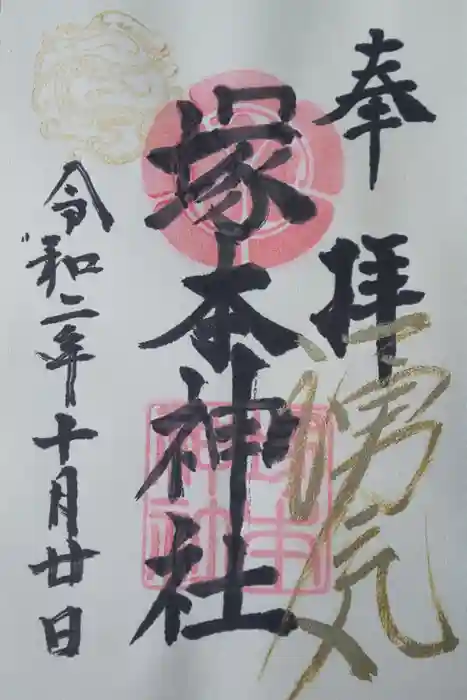 奉拝
湧気
塚本神社
令和二年十月廿日